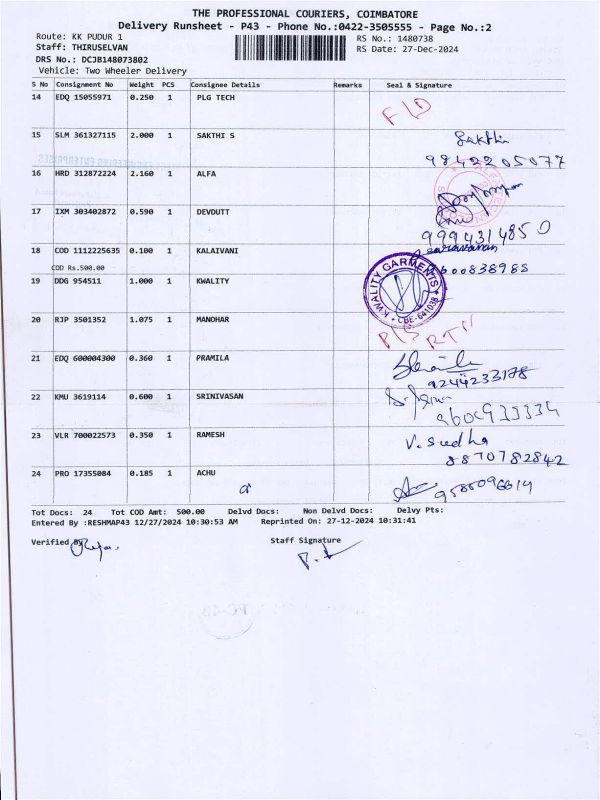 THE PROFESSIONAL COURIERS, COIMBATORE
Delivery Runsheet - P43 - Phone No.:0422-3505555 - Page No.:2
Route: KK PUDUR 1 RS No.: 1480738
Staff: THIRUSELVAN RS Date: 27-Dec-2024
DRS No.: DCJB148073802
Vehicle: Two Wheeler Delivery
S No Consignment No Weight PCS Consignee Details Remarks Seal & Signature
14 EDQ 15055971 0.250 1 PLG TECH F/D
15 SLM 361327115 2.000 1 SAKTHI S Sakthi
9842205077
16 HRD 312872224 2.160 1 ALFA
17 IXM 303402872 0.590 1 DEVDUTT
9994314850
18 COD 1112225635 0.100 1 KALAIVANI Saravanan
COD Rs.500.00 9600838988
19 DDG 954511 1.000 1 KWALITY KWALITY GARMENTS * CBE-641038 *
20 RJP 3501352 1.075 1 MANOHAR RTN
21 EDQ 600004300 0.360 1 PRAMILA
9244233178
22 KMU 3619114 0.600 1 SRINIVASAN
9600933334
23 VLR 700022573 0.350 1 RAMESH V. Sudha
8870782842
24 PRO 17355084 0.185 1 ACHU 9585096614
Tot Docs: 24 Tot COD Amt: 500.00 Delvd Docs: Non Delvd Docs: Delvy Pts:
Entered By :RESHMAP43 12/27/2024 10:30:53 AM Reprinted On: 27-12-2024 10:31:41
Verified By Staff Signature